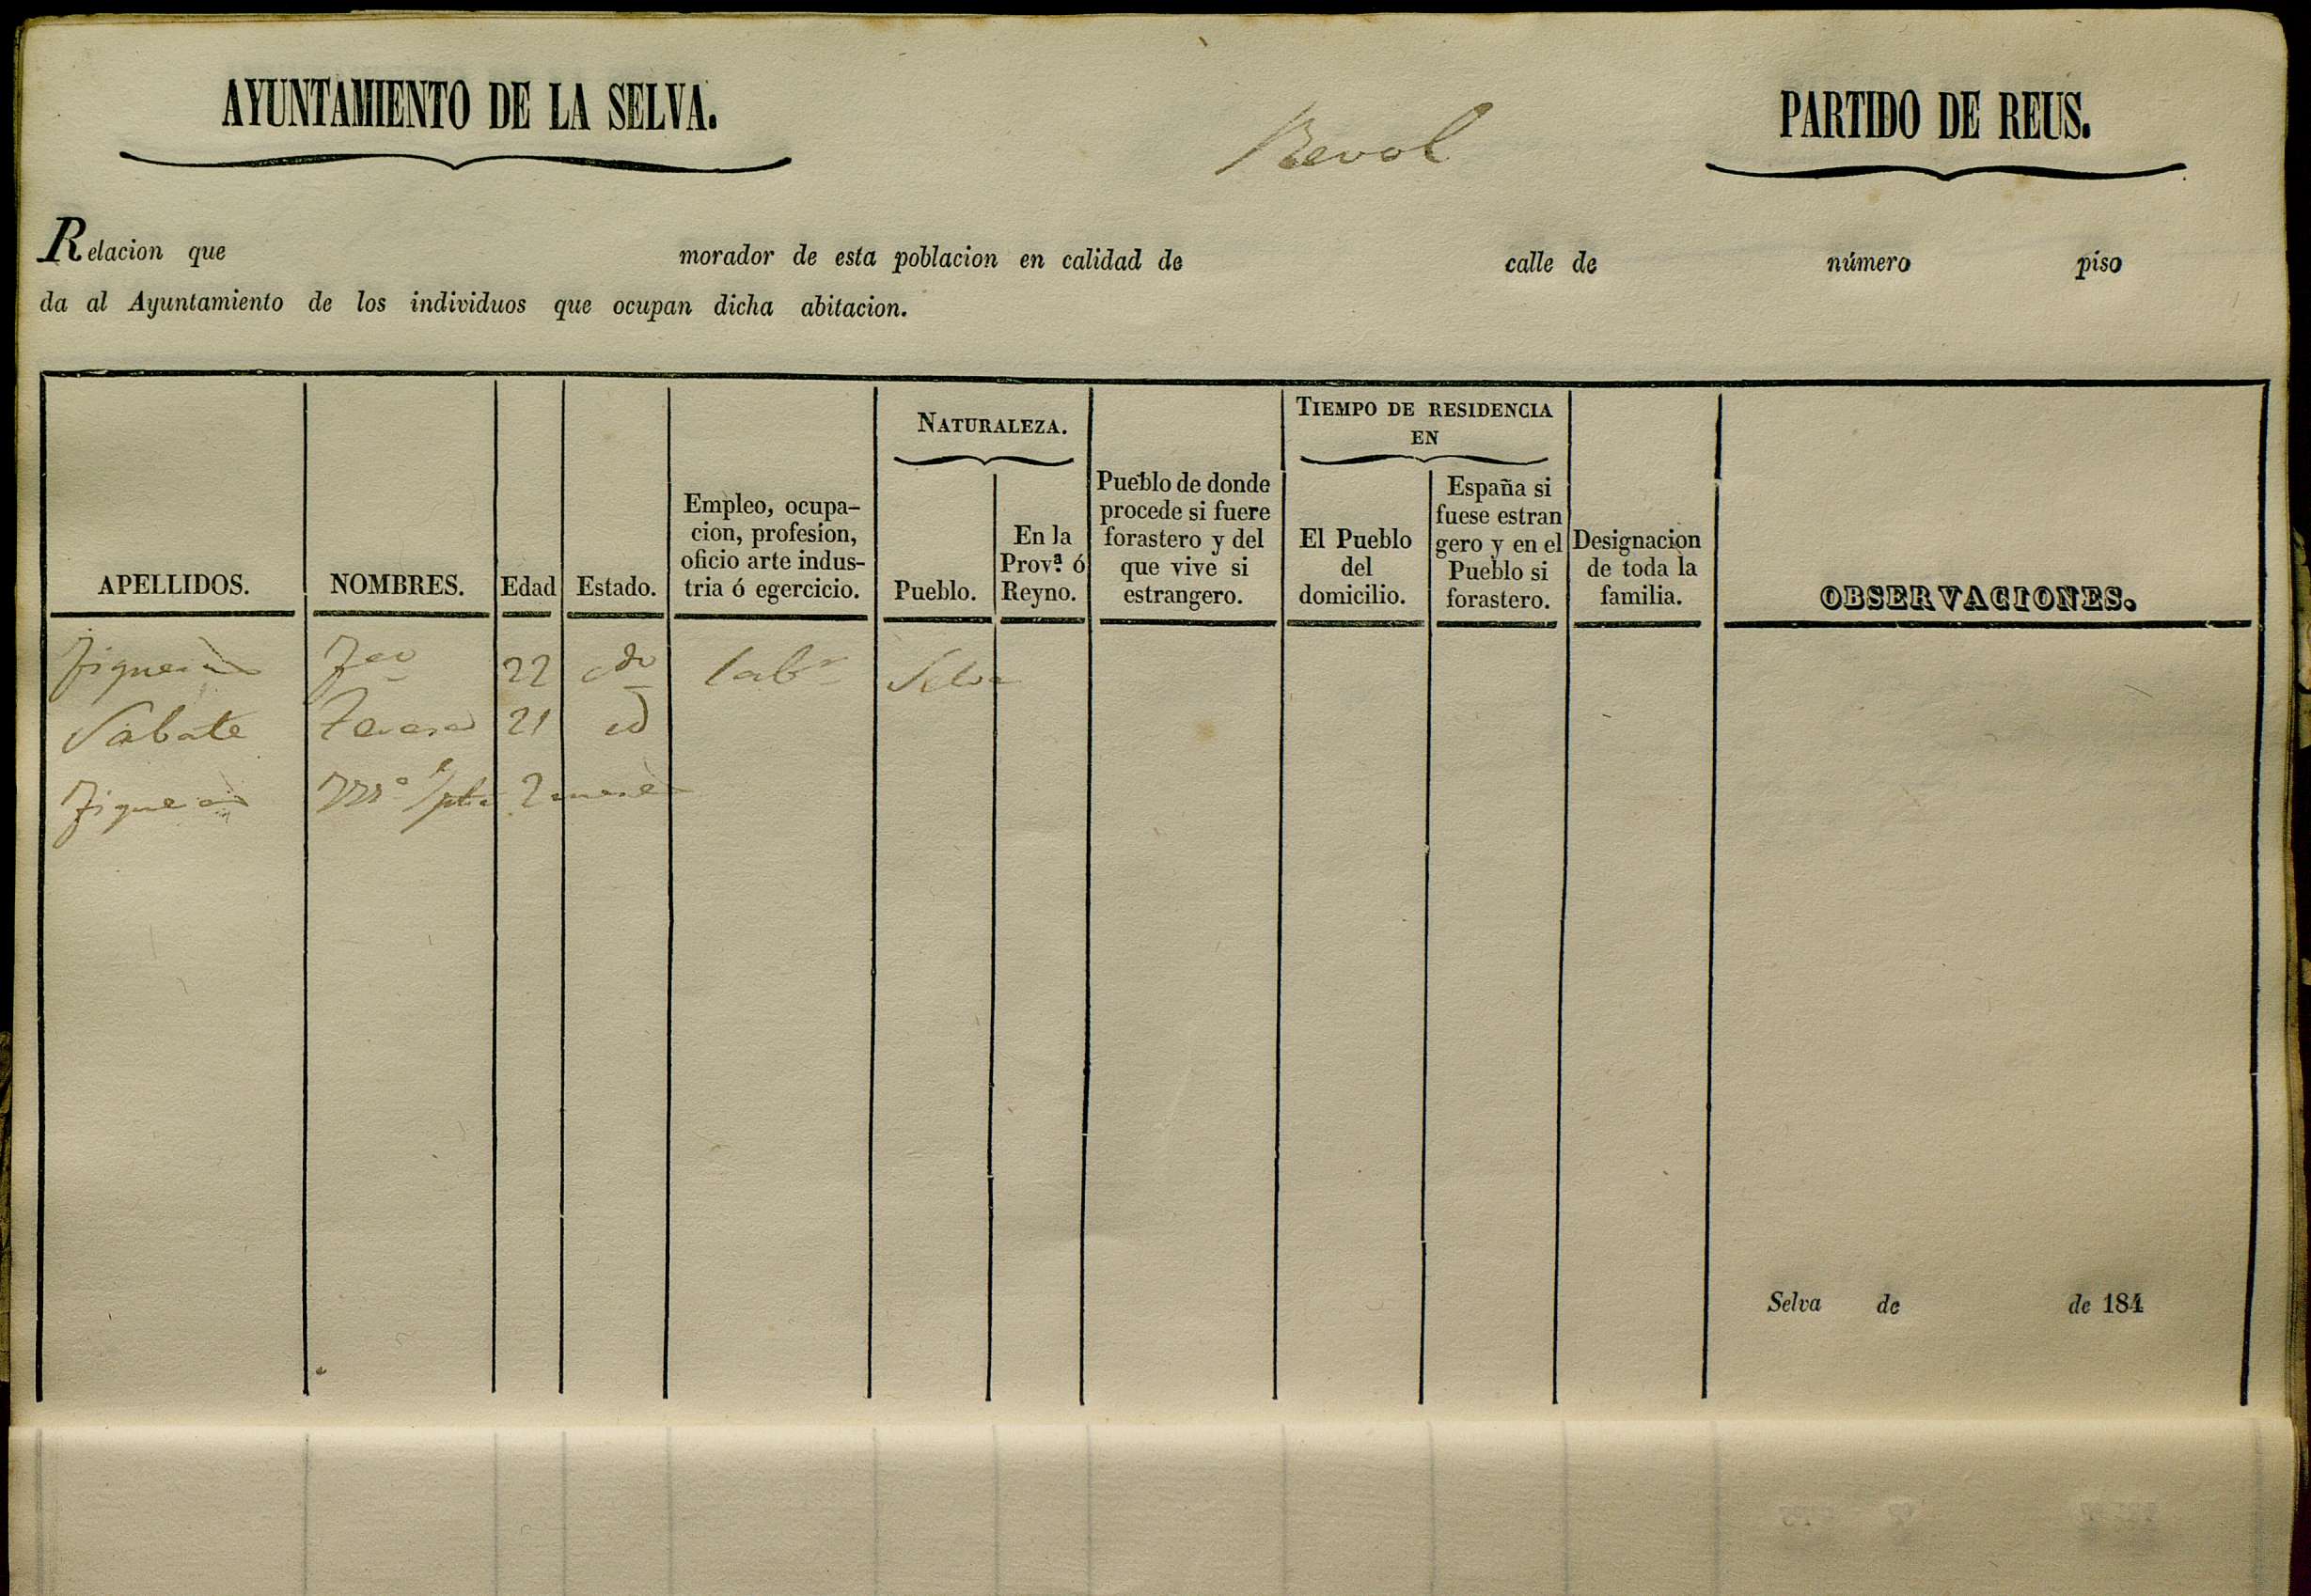 AYUNTAMIENTO DE LA SELVA.
Revol
PARTIDO DE REUS.
Relacion que morador de esta poblacion en calidad de calle de número piso
da al Ayuntamiento de los individuos que ocupan dicha abitacion.
APELLIDOS.
NOMBRES.
Edad
Estado.
Empleo, ocupa-
cion, profesion,
oficio arte indus-
tria ó egercicio.
NATURALEZA.
Pueblo.
En la
Prov.ª ó
Reyno.
Pueblo de donde
procede si fuere
forastero y del
que vive si
estrangero.
TIEMPO DE RESIDENCIA
EN
El Pueblo
del
domicilio.
España si
fuese estran
gero y en el
Pueblo si
forastero.
Designacion
de toda la
familia.
OBSERVACIONES.
Figueras Fco 22 cdo labr Selva
Sabate Teresa 21 id
Figueras 2 meses
Selva de de 184